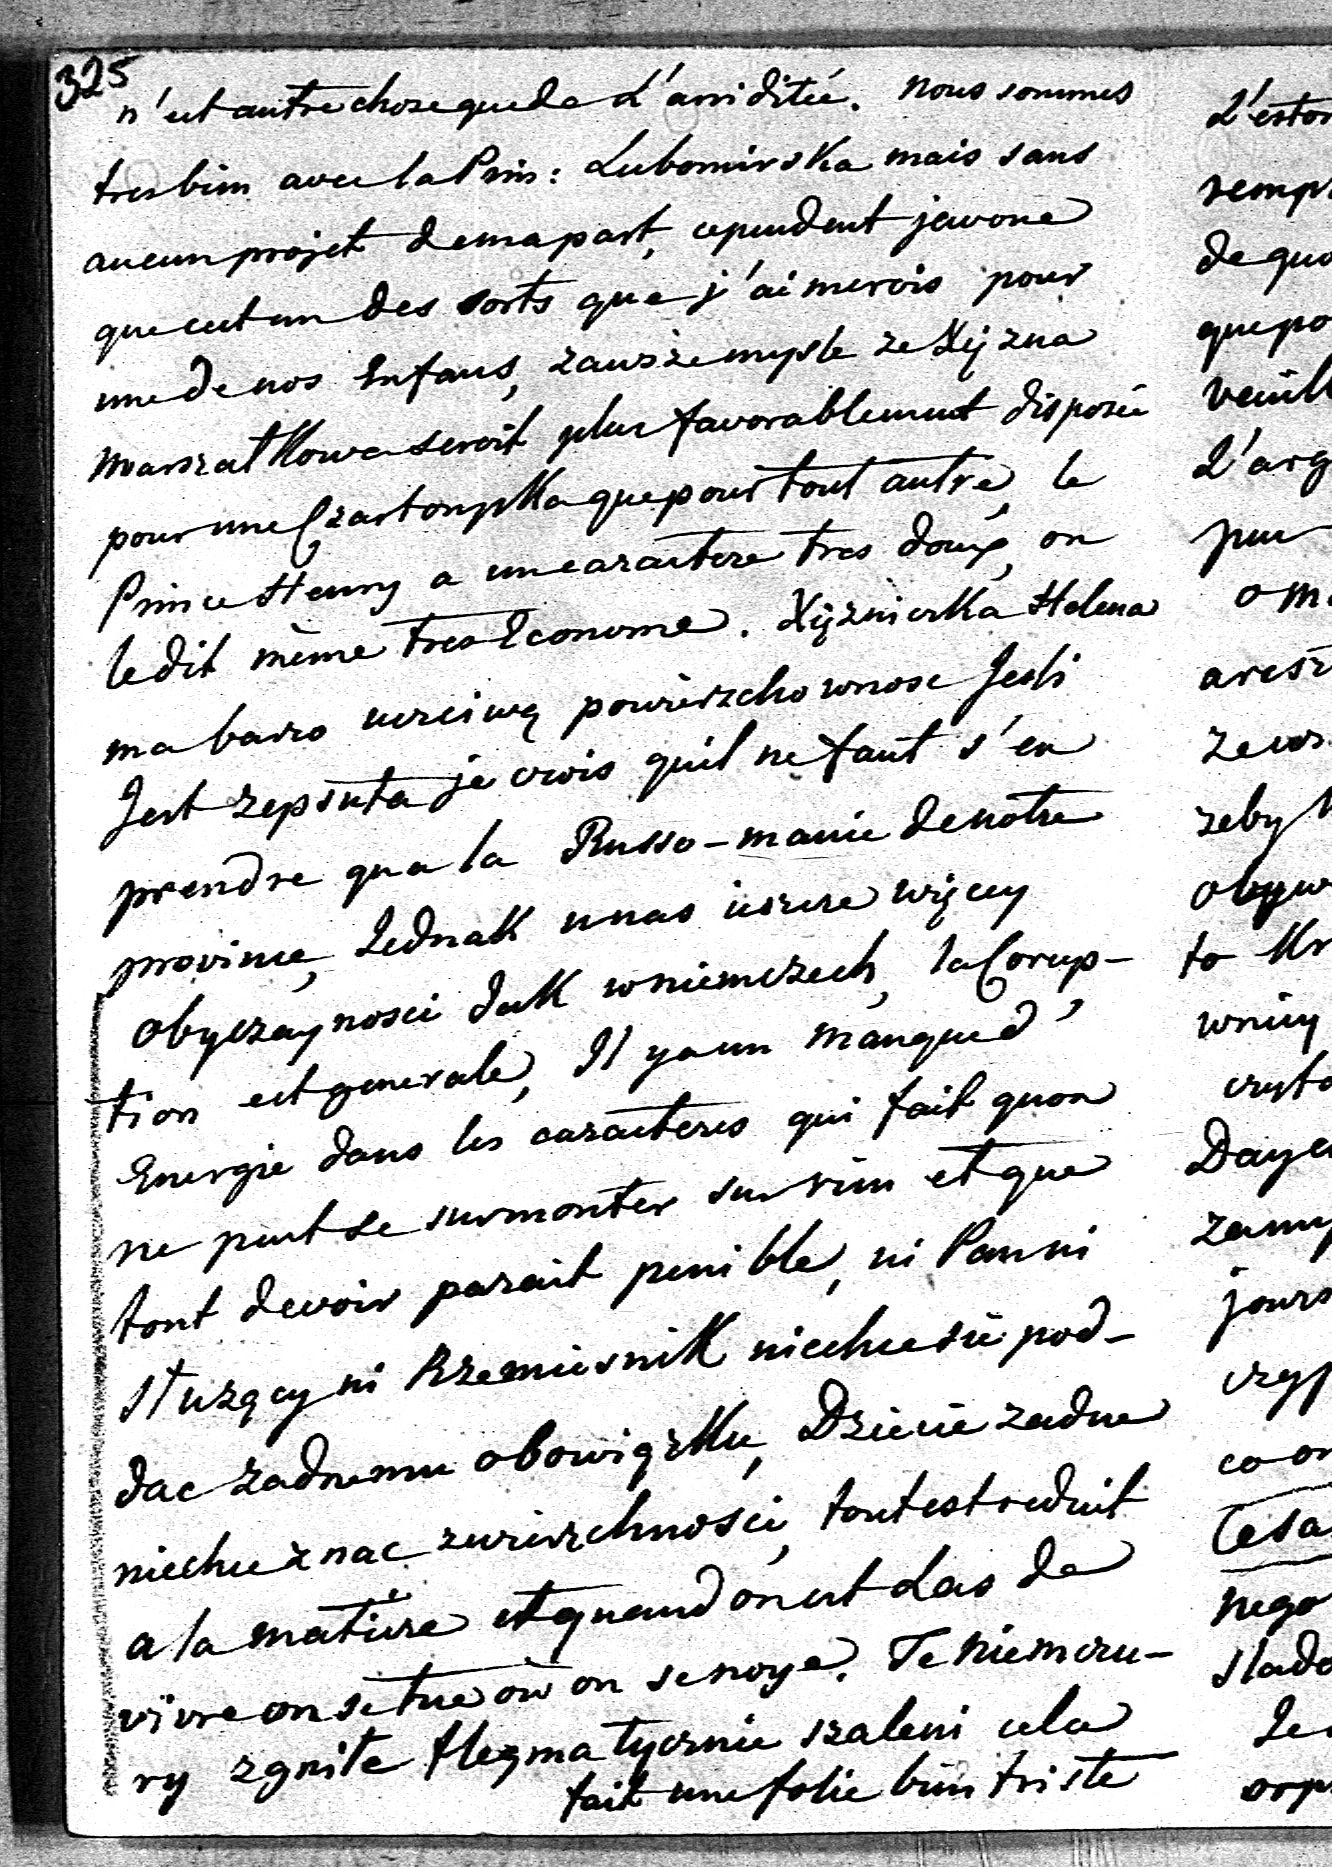 325
n'est autre chose que de l'ariditée. nous sommes
tres bien avec la Prin: Lubomirska mais sans
aucun projet de ma part, cependent javoue
que cest un des sorts que j'aimerois pour
une de nos Enfans, zawsze mysle ze Xiȩzna
Marszałkowa seroit plus favorablement disposée
pour une Czartoryska que pour tout autre, le
Prince Henry a un caractere tres doux, on
le dit même tres Econome. Xięzniczka Helena
ma barzo uczciwą powierzchownosc Jesli
Jest zepsuta je crois quil ne faut s'en
prendre qua la Russo-manie de notre
province, Jednak u nas ieszcze więcey
obyczaynosci Jak w niemczech, la Corup-
tion est generale, Il y a un manque d'
Energie dans les caracteres qui fait quon
ne peut se surmonter sur rien et que
tout devoir parait penible, ni Pan ni
słuzący ni Rzemiesnik niechce sie pod-
dac zadnemu obowiązku, Dziecie zadne
niechce znac zwierzchnosci, tout est reduit
a la matière et quand on est Las de
vivre on se tue où on se noye. Te niemczu-
ry zgniłe flegmatycznie szaleni cela
fait une folie bien triste
de quo
que po
L'arg
to Kr
jours
co or